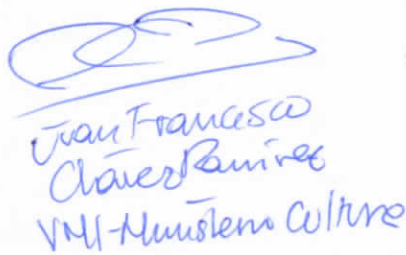 Juan Francesco
Chávez Ramírez
VMI-Ministerio Cultura